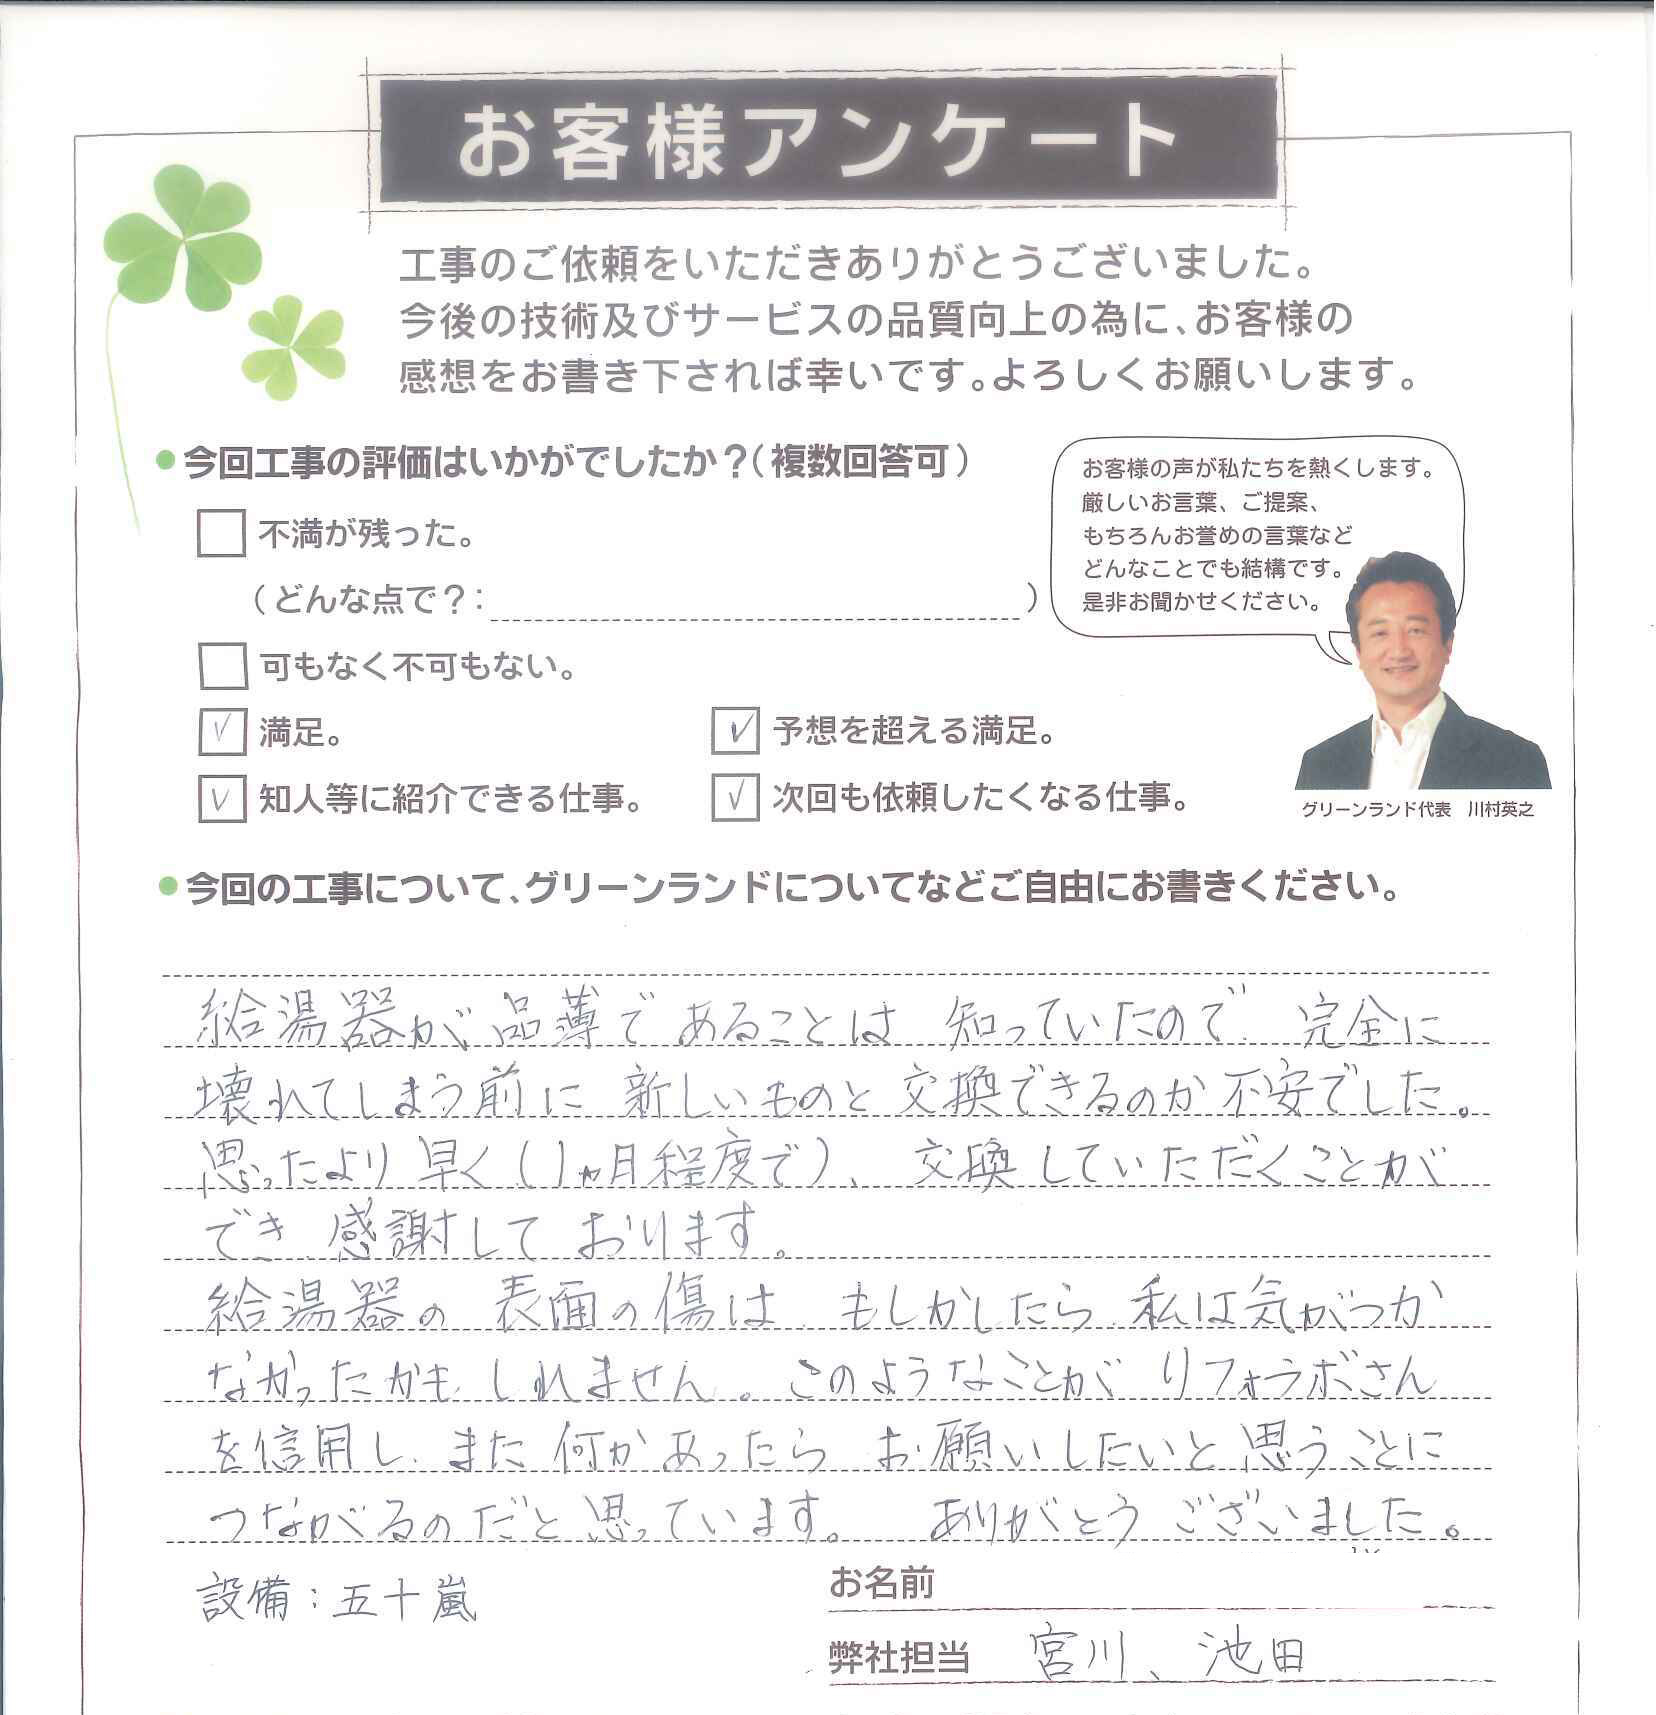 お客様アンケート
工事のご依頼をいただきありがとうございました。
今後の技術及びサービスの品質向上の為に、お客様の
感想をお書き下されば幸いです。よろしくお願いします。
今回工事の評価はいかがでしたか？（複数回答可）
不満が残った。
（どんな点で？：　　　）
可もなく不可もない。
満足。
予想を超える満足。
知人等に紹介できる仕事。
次回も依頼したくなる仕事。
お客様の声が私たちを熱くします。
厳しいお言葉、ご提案、
もちろんお誉めの言葉など
どんなことでも結構です。
是非お聞かせください。
グリーンランド代表　川村英之
今回の工事について、グリーンランドについてなどご自由にお書きください。
給湯器が品薄であることは 知っていたので 完全に
壊れてしまう前に 新しいものと 交換できるのか 不安でした。
思ったより早く（1ヵ月程度で）、交換していただくことが
でき 感謝しております。
給湯器の 表面の傷は もしかしたら 私は気がつか
なかったかもしれません。このようなことが リフォラボさん
を信用し、また 何かあったら お願いしたいと思うことに
つながるのだと思っています。 ありがとうございました。
設備：五十嵐
お名前
弊社担当　宮川、池田